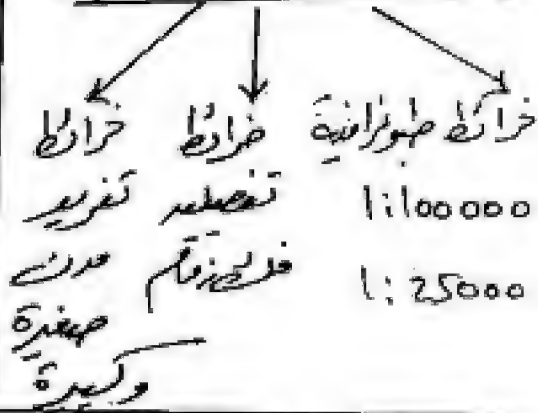 خرائط طبوغرافية
1:100000
1:25000
خرائط
تفصيلية
خرائط
تفريد
مدن
صغيرة
وكبيرة